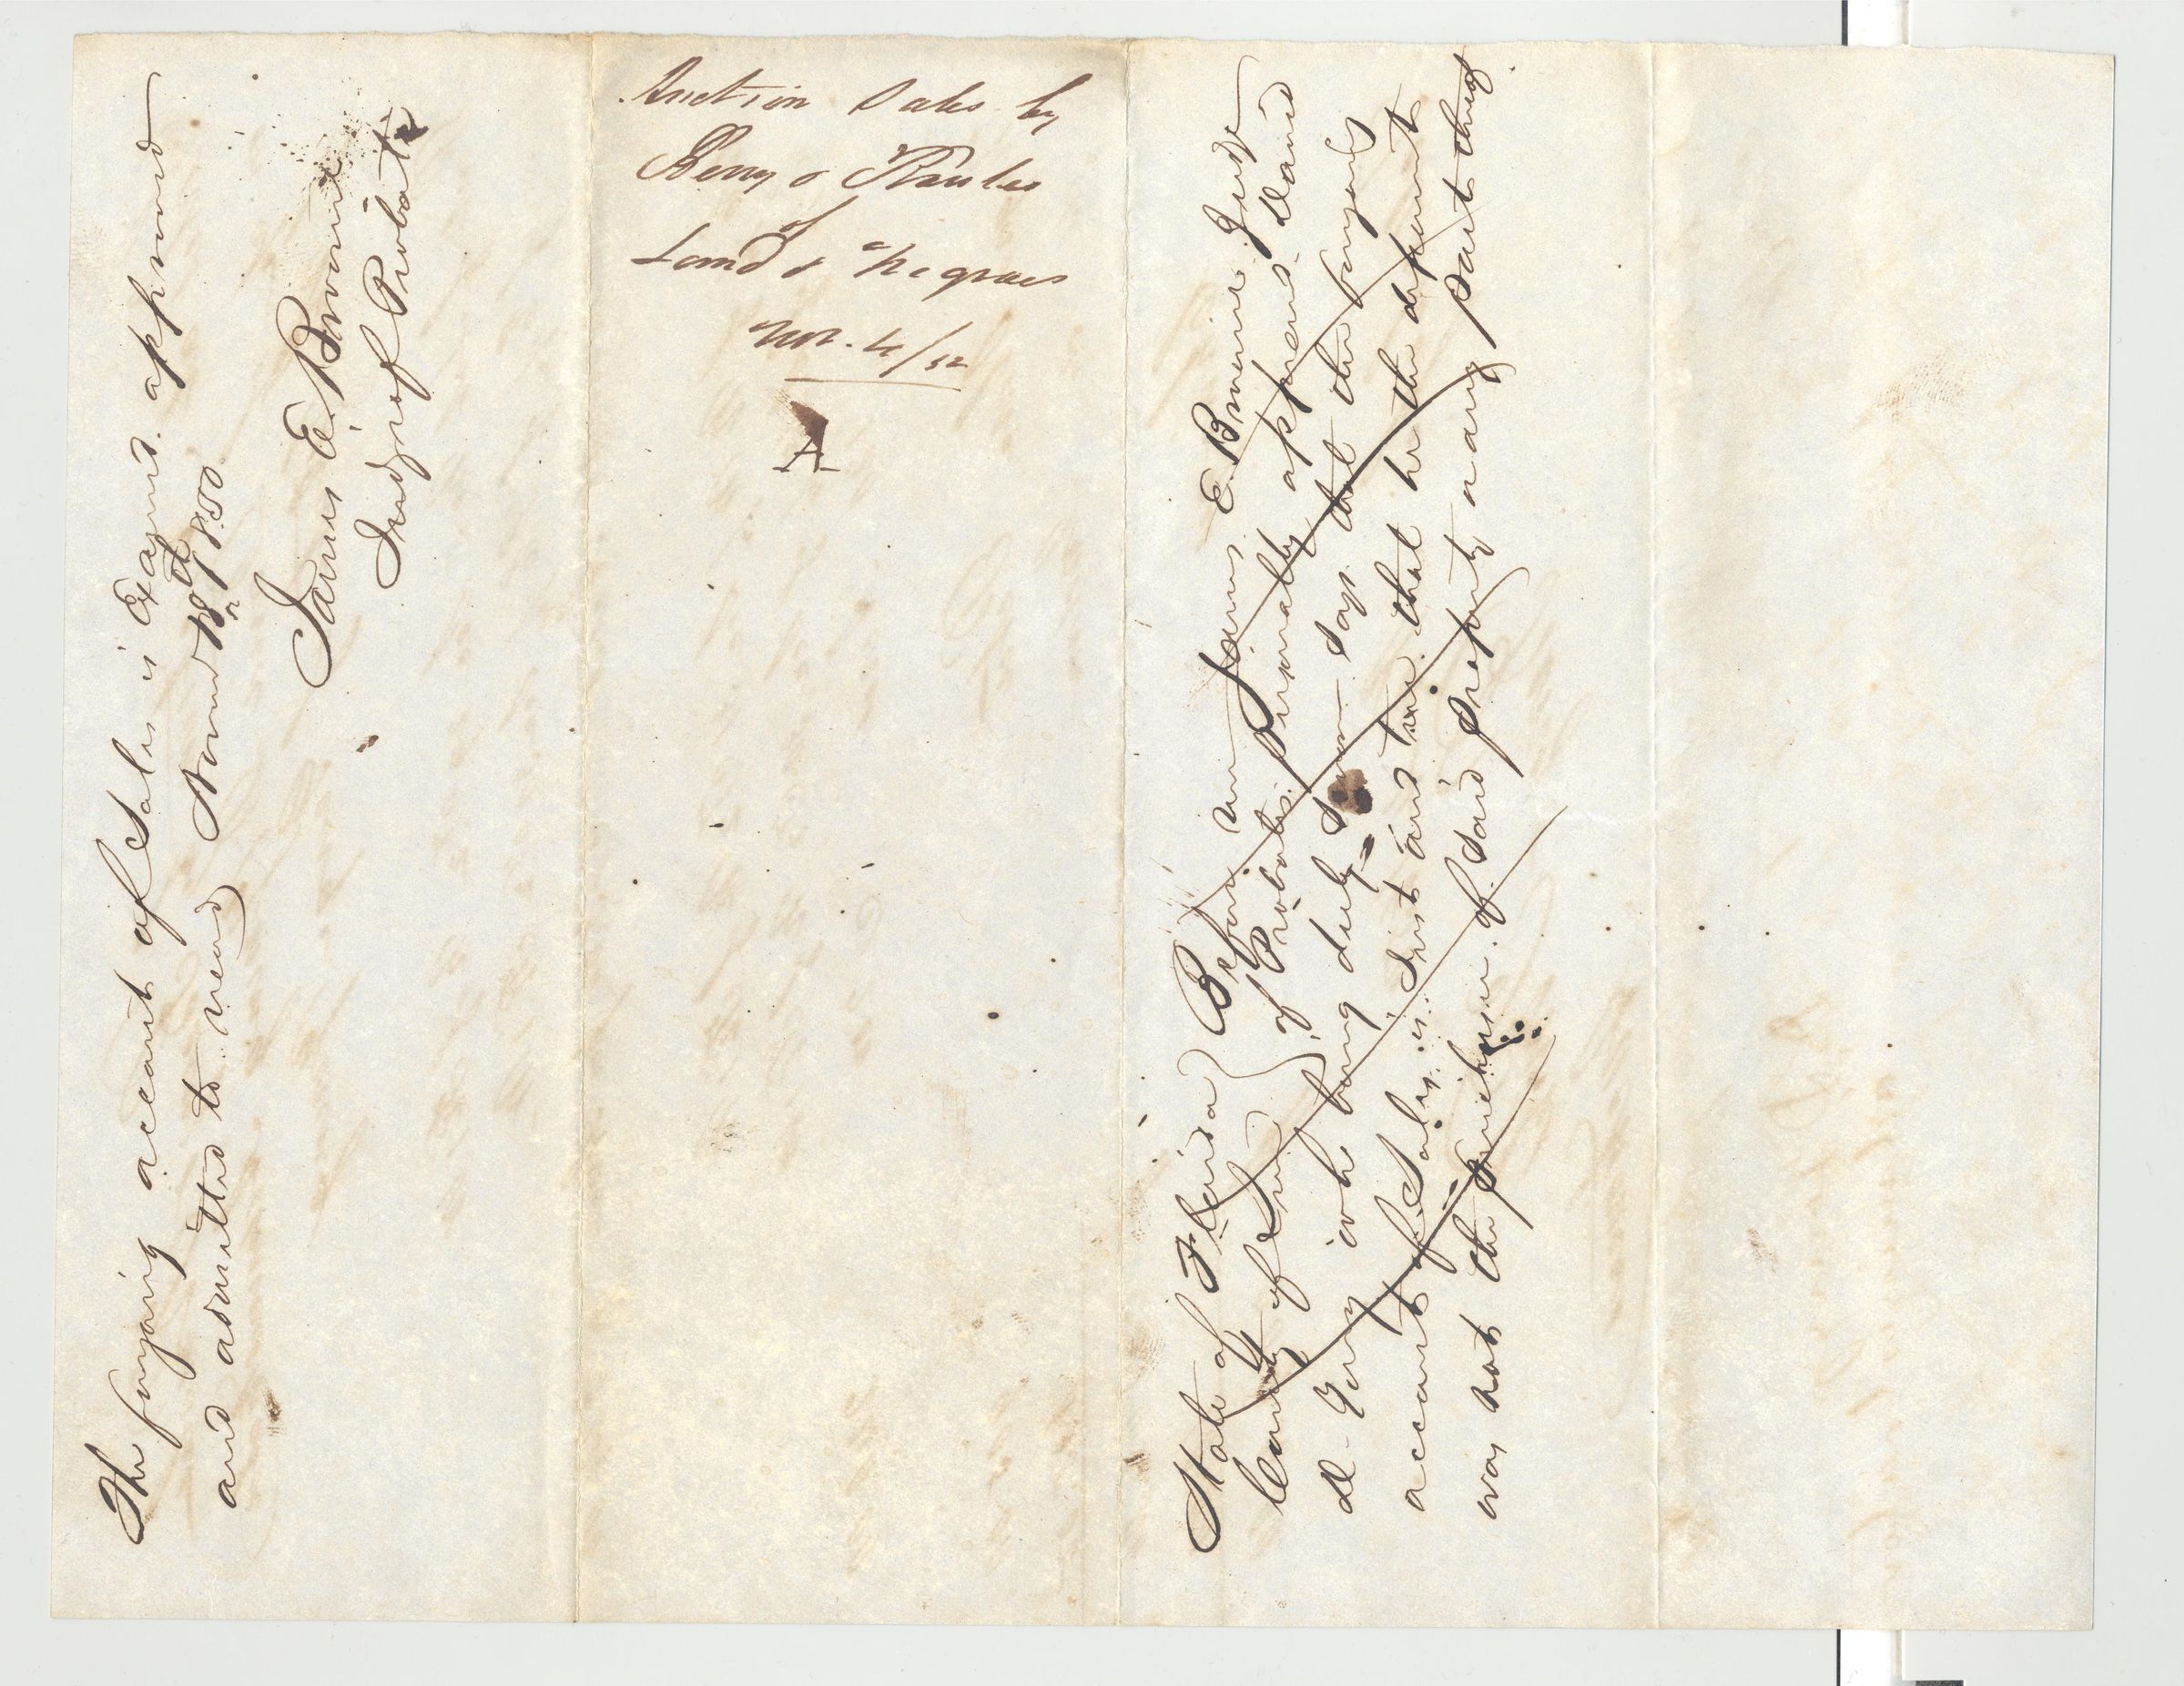 The foregoing account of Sales is Examd. approved
and admitted to record Novemr 18th 1850
James E. Broome
Judge of Probate
Auction Sales by
Berry &
of
Land & Negroes
Nov. 4/50
A
State of Florida } Before me James E. Broome Judge
County of Leon } of Probate. personally appeared David
who being duly Sworn says that the foregoing
account of Sales is Just and true that he the deponent
was not the purchaser of said property nor any part thereof